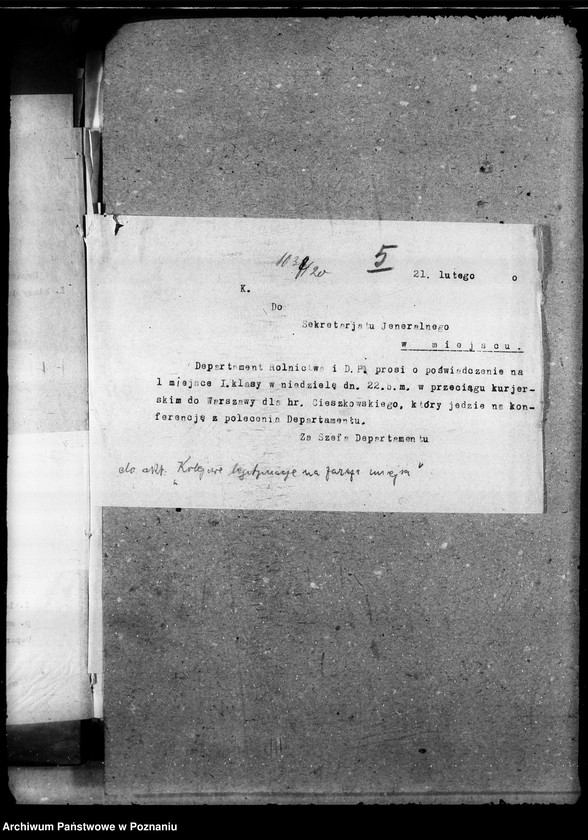 5
21. lutego o
K.
Do
Sekretarjatu Jeneralnego
w miejscu.
Departament Rolnictwa i D.P. prosi o poświadczenie na
1 miejsce I.klasy w niedzielę dn. 22.b.m. w przeciągu kurjer-
skim do Warszawy dla hr. Cieszkowskiego, który jedzie na kon-
ferencję z polecenia Departamentu.
Za Szefa Departamentu
do akt. "Kolejowe legitymacje na
Archiwum Państwowe w Poznaniu